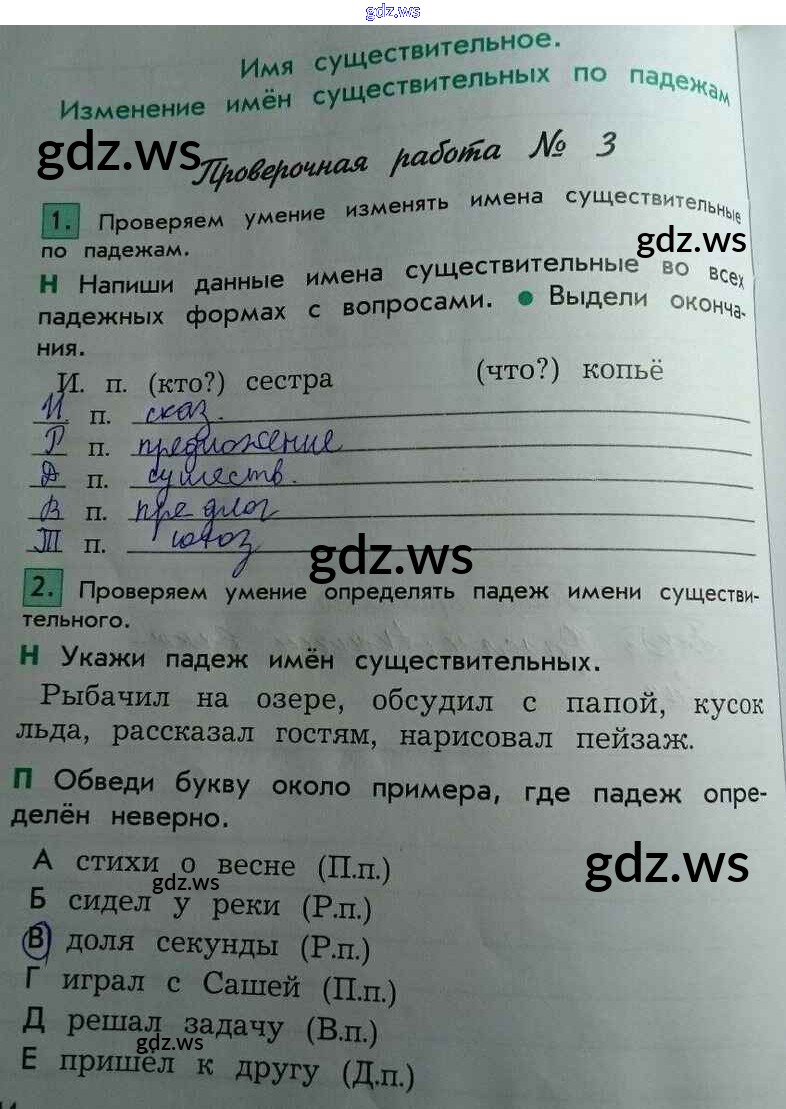 gdz.ws
Имя существительное.
Изменение имён существительных по падежам
gdz.ws
Проверочная работа № 3
1. Проверяем умение изменять имена существительные
по падежам.
gdz.ws
Н Напиши данные имена существительные во всех
падежных формах с вопросами. ● Выдели оконча-
ния.
И. п. (кто?) сестра (что?) копьё
И п. сказ.
Р п. предложение
Д п. существ.
В п. предлог
Т п.
gdz.ws
2. Проверяем умение определять падеж имени существи-
тельного.
Н Укажи падеж имён существительных.
Рыбачил на озере, обсудил с папой, кусок
льда, рассказал гостям, нарисовал пейзаж.
П Обведи букву около примера, где падеж опре-
делён неверно.
А стихи о весне (П.п.)
gdz.ws
gdz.ws
Б сидел у реки (Р.п.)
В доля секунды (Р.п.)
Г играл с Сашей (П.п.)
Д решал задачу (В.п.)
gdz.ws
Е пришёл к другу (Д.п.)